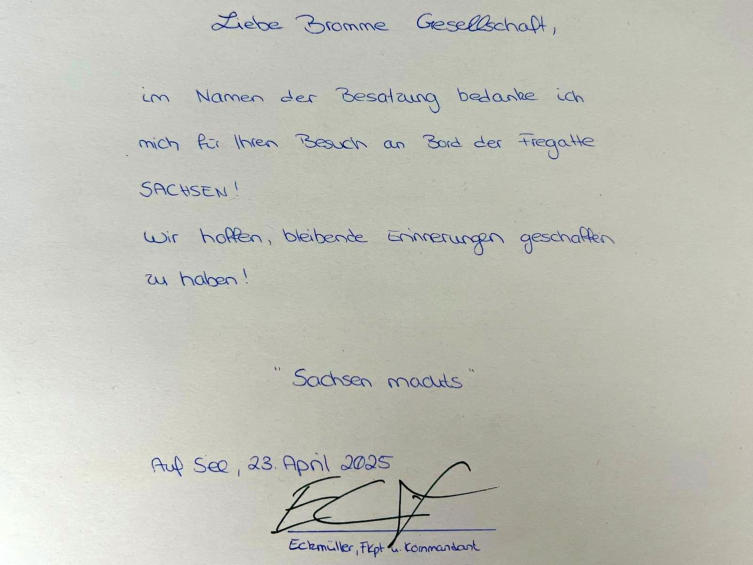 Liebe Bromme Gesellschaft,
im Namen der Besatzung bedanke ich
mich für Ihren Besuch an Bord der Fregatte
SACHSEN!
Wir hoffen, bleibende Erinnerungen geschaffen
zu haben!
"Sachsen machts"
Auf See, 23. April 2025
Eckmüller, FKpt u. Kommandant